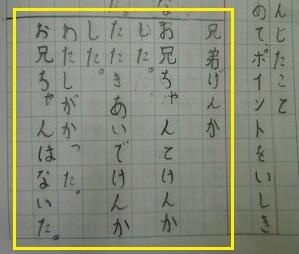 んじたこと
めてポイントをいしき
兄弟げんか
お兄ちゃんとけんか
した。
たたきあいでけんか
した。
わたしがかった。
お兄ちゃんはないた。